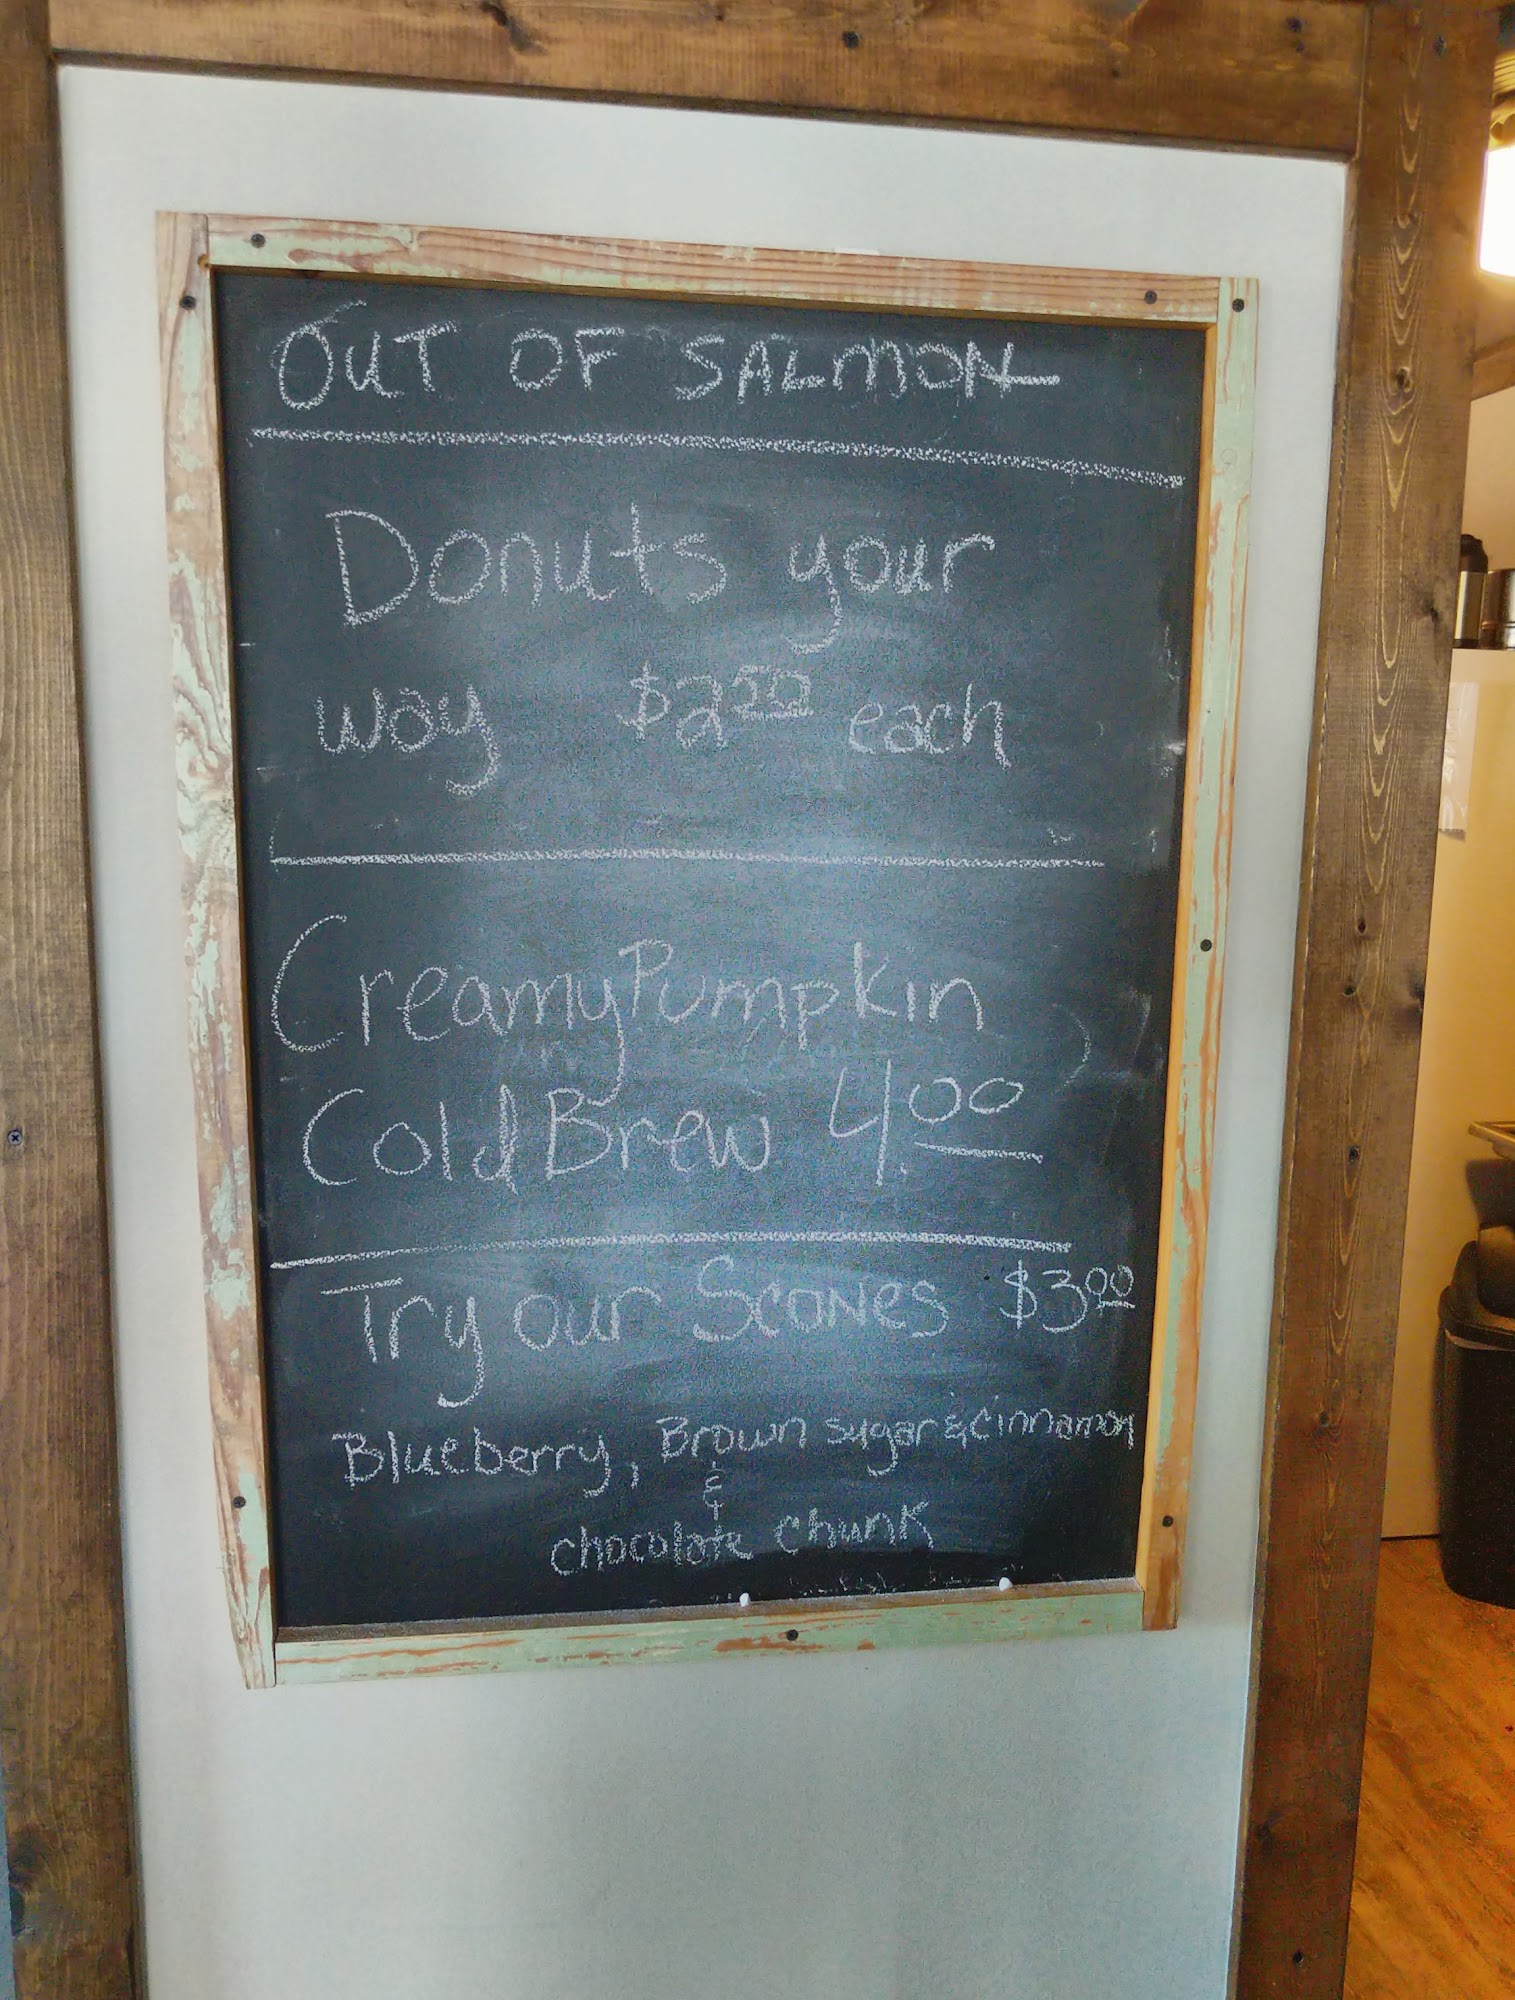 OUT OF SALMON
Donuts your
way $2.50 each
Creamy Pumpkin
Cold Brew 4.00
Try our Scones $3.00
Blueberry, Brown sugar & cinnamon
&
chocolate chunk